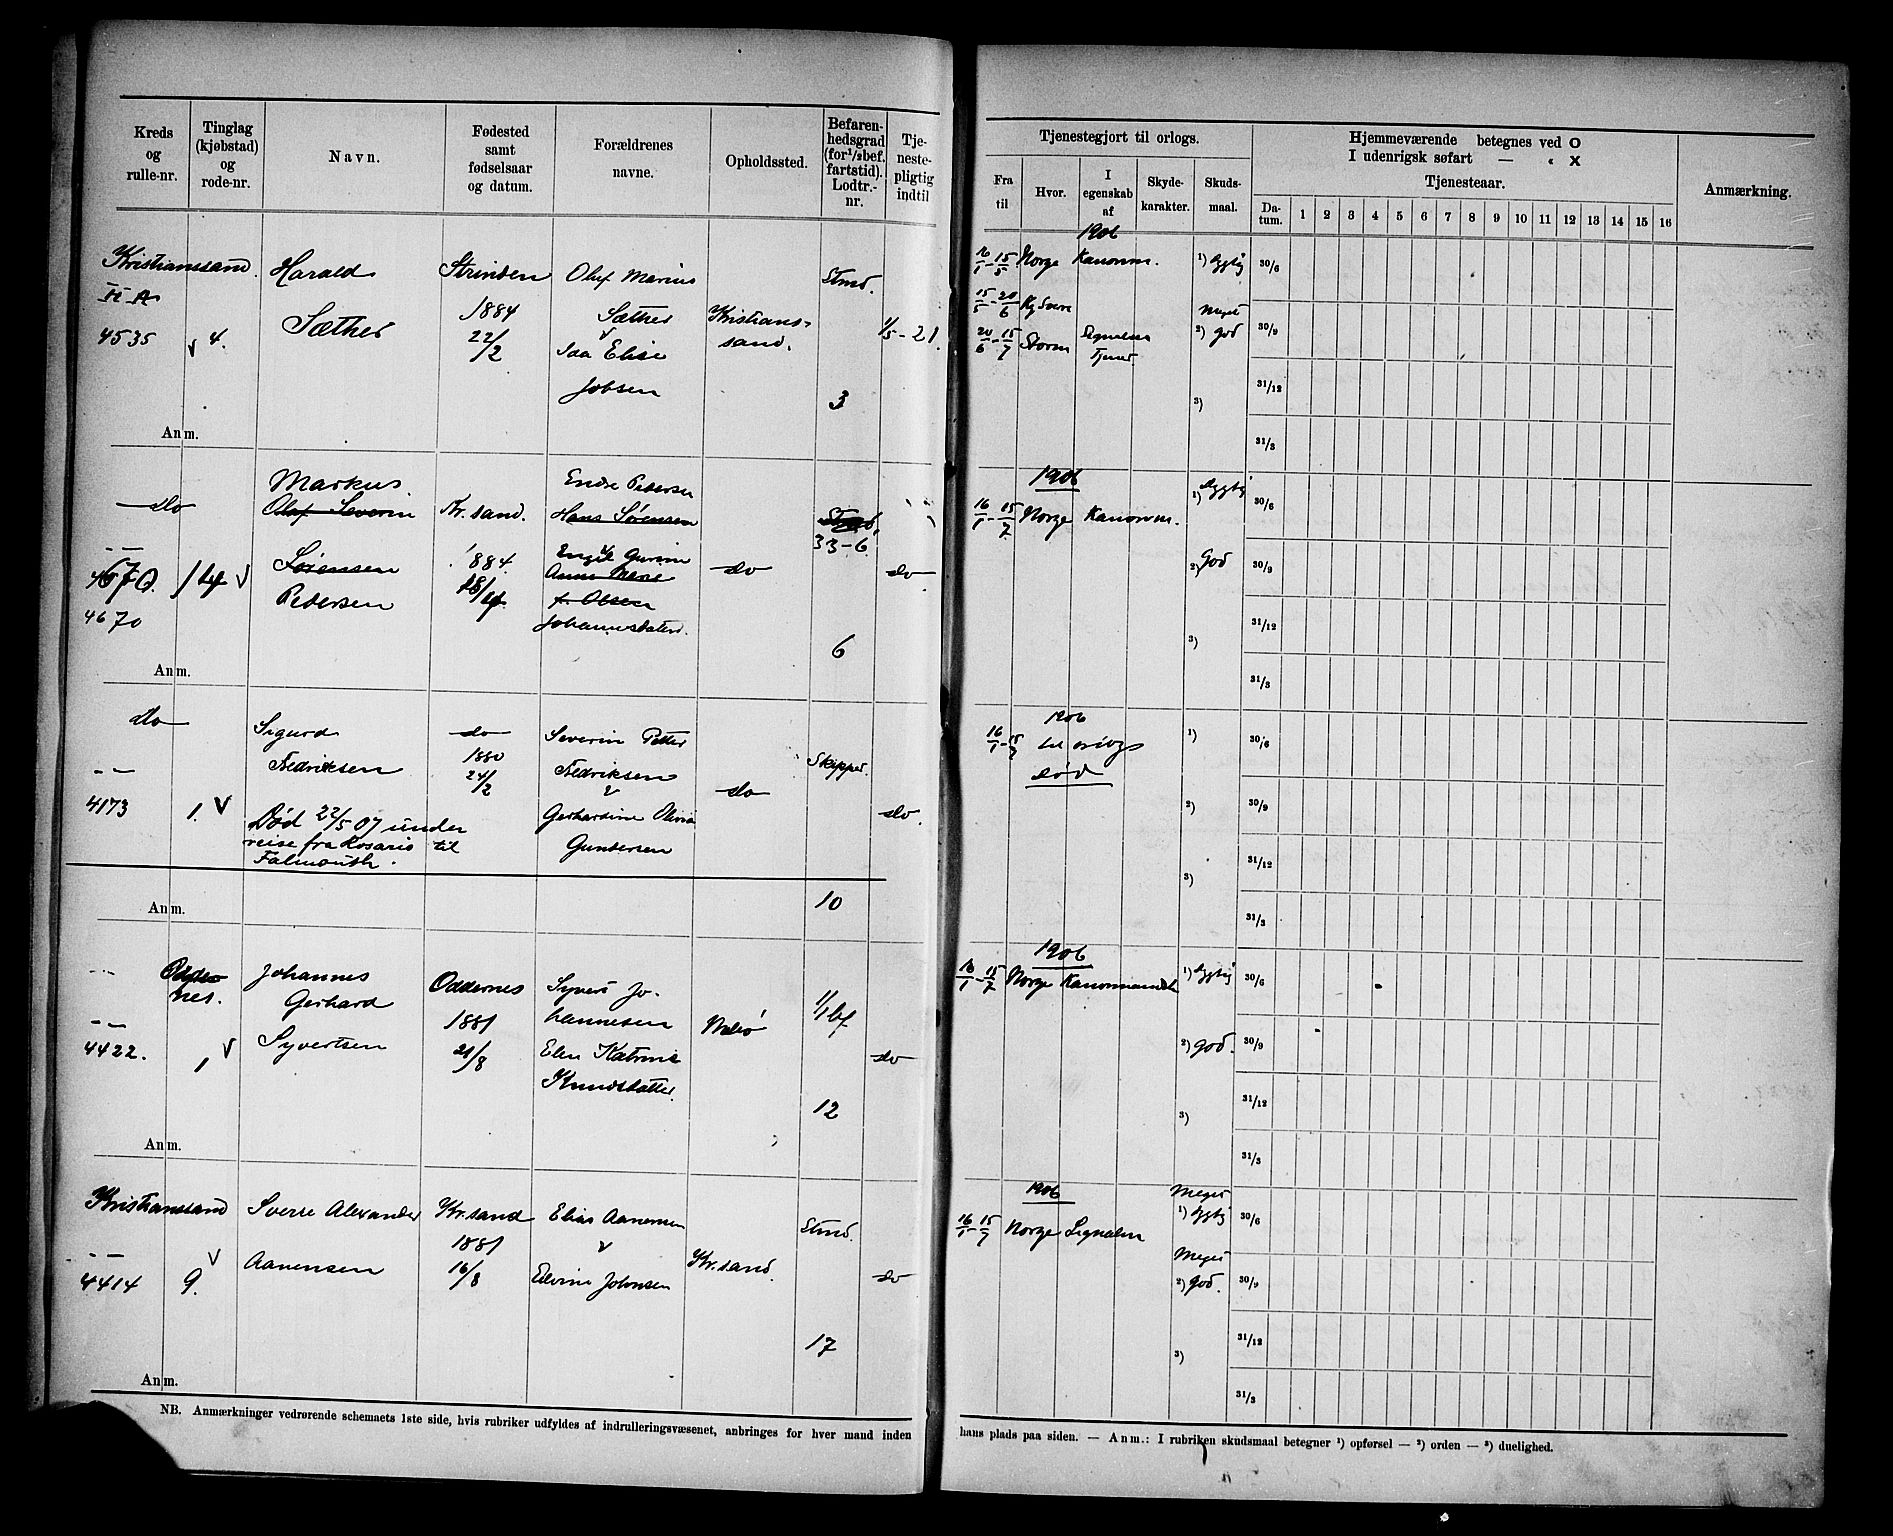 Kreds og rulle-nr.
Tinglag (kjøbstad) og rode-nr.
Navn.
Fødested samt fødselsaar og datum.
Forældrenes navne.
Opholdssted.
Befaren-hedsgrad (for 1/2 bef. fartstid). Lodtr.-nr.
Tje-neste-pligtig indtil
Tjenestegjort til orlogs.
Fra til
Hvor.
I egenskab af
Skyde-karakter.
Skuds-maal.
Hjemmeværende betegnes ved O
I udenrigsk søfart — « X
Tjenesteaar.
Da-tum. 1 2 3 4 5 6 7 8 9 10 11 12 13 14 15 16
Anmærkning.
Kristianssand
4535
4.
Harald
Sæther
Strinden
1884
22/2
Oluf Marius
Sæther
v
Ida Elise
Jobsen
Kristians-
sand.
Stmd.
3
1/5-21
1906
16/1-15/5 Norge Kanonm.
15/5-20/6
20/6-15/7 Storm
1) dygtig
Meget
2) god
3)
30/6
30/9
31/12
31/3
Anm.
do
4670
Markus
Olaf Severin
Sørensen
Pedersen
Kr.sand.
1884
Endre Pedersen
Hans Sørensen
Engel Gurine
Anna Marie
f. Olsen
Johannesdatter.
do
33-6
6
do
1906
16/1-15/7 Norge Kanonm.
1) dygtig
2) god
3)
30/6
30/9
31/12
31/3
Anm.
do
4173
1. v
Sigurd
Fredriksen
Død 22/5 07 under
reise fra Rosario til
Falmouth.
do
1880
24/2
Severin Petter
Fredriksen
v
Gerhardine Olivia
Gundersen
do
Skipper.
10
do.
1906
16/1-15/7 til orlogs
død
1)
2)
3)
30/6
30/9
31/12
31/3
Anm.
Odder
nes.
4422.
1 v
Johannes
Gerhard
Syvertsen
Oddernes
1881
21/8
Syvert Jo-
hannesen
Elen Katrine
Knudsdatter.
1/1 bf
12
do
1906
16/1-15/7 Norge Kanonmandsk
1) dygtig
2) god.
3)
30/6
30/9
31/12
31/3
Anm.
Kristianssand
4414
v
9.
Sverre Alexander
Aanensen
Kr.sand
1881
16/8
Elias Aanensen
v
Edvine Johnsen
Kr.sand.
Stmd.
17
do
1906
16/1-15/7 Norge Signalm
Meget
1) dygtig
Meget
2) god.
3)
30/6
30/9
31/12
31/3
Anm.
NB. Anmærkninger vedrørende schemaets 1ste side, hvis rubriker udfyldes af indrulleringsvæsenet, anbringes for hver mand inden
hans plads paa siden. — Anm.: I rubriken skudsmaal betegner 1) opførsel — 2) orden — 3) duelighed.